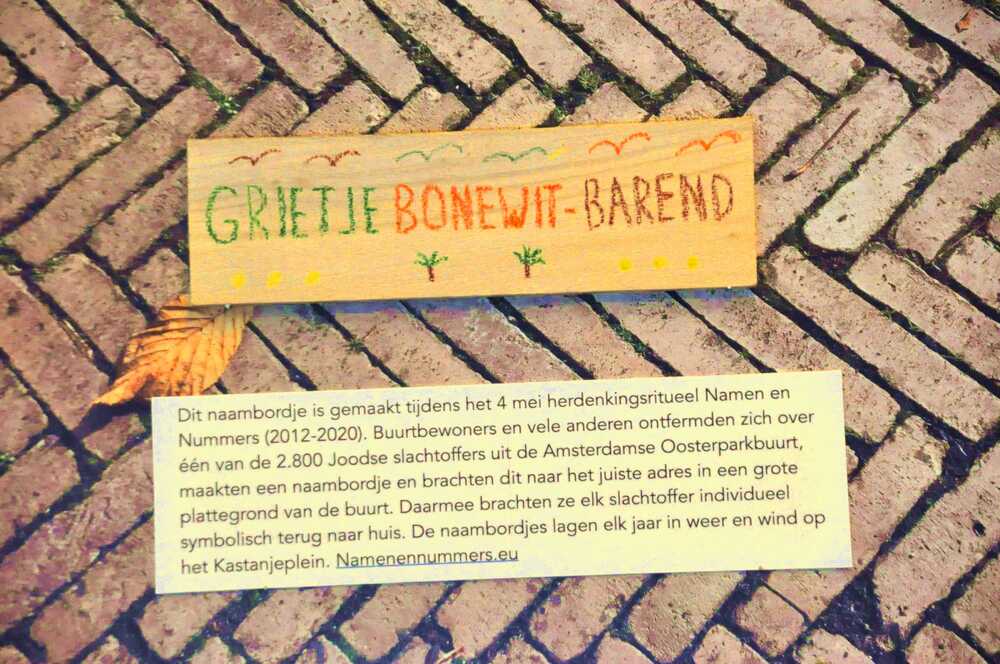 GRIETJE BONEWIT-BAREND
Dit naambordje is gemaakt tijdens het 4 mei herdenkingsritueel Namen en
Nummers (2012-2020). Buurtbewoners en vele anderen ontfermden zich over
één van de 2.800 Joodse slachtoffers uit de Amsterdamse Oosterparkbuurt,
maakten een naambordje en brachten dit naar het juiste adres in een grote
plattegrond van de buurt. Daarmee brachten ze elk slachtoffer individueel
symbolisch terug naar huis. De naambordjes lagen elk jaar in weer en wind op
het Kastanjeplein. Namenennummers.eu